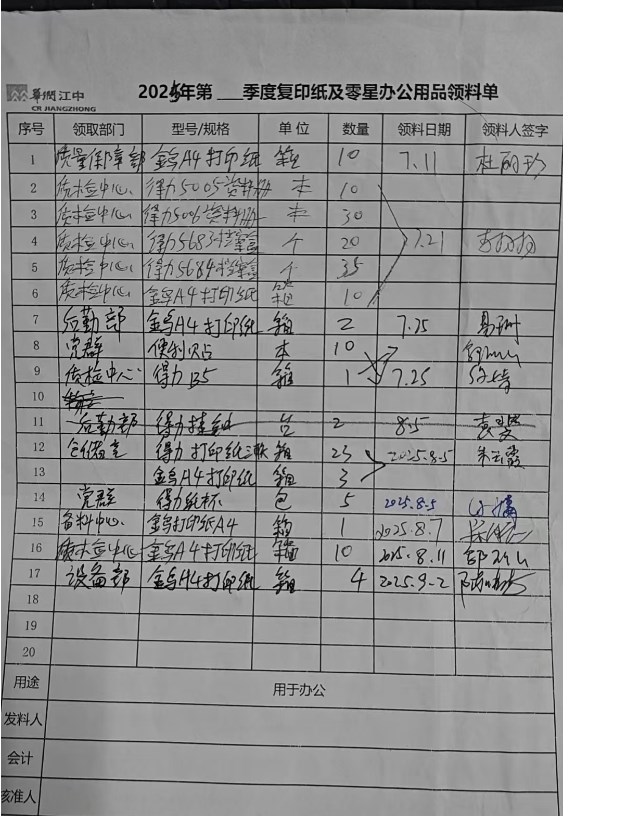 華潤江中
CR JIANGZHONG
2025年第___季度复印纸及零星办公用品领料单
序号 领取部门 型号/规格 单位 数量 领料日期 领料人签字
1 质量保障部 金鸟A4打印纸 箱 10 7.11 杜丽珍
2 质检中心 得力5005资料册 本 10
3 质检中心 得力5006资料册 本 30
4 质检中心 得力5683档案盒 个 20 7.21
5 质检中心 得力5684档案盒 个 35
6 质检中心 金鸟A4打印纸 箱 10
7 后勤部 金鸟A4打印纸 箱 2 7.25
8 党群 便利贴 本 10
9 质检中心 得力B5 箱 1 7.25
10
11 后勤部 得力 台 2 8.5
12 仓储室 得力打印纸三联 箱 23 2025.8.5
13 金鸟A4打印纸 箱 3
14 党群 得力纸杯 包 5 2025.8.5
15 备料中心 金鸟打印纸A4 箱 1 2025.8.7
16 质检中心 金鸟A4打印纸 箱 10 2025.8.11
17 设备部 金鸟A4打印纸 箱 4 2025.9-2
18
19
20
用途 用于办公
发料人
会计
核准人